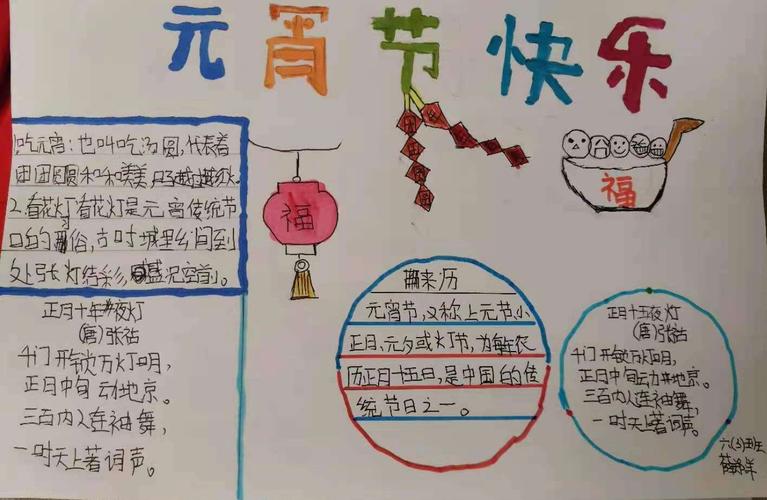 元宵节快乐
吃元宵:也叫吃汤圆,代表着
团团圆圆和和美美,日子越过越红火。
2.看花灯:看花灯是元宵传统节
日的习俗,古时城里乡间到
处张灯结彩,盛况空前。
正月十五夜灯
(唐)张祜
千门开锁万灯明,
正月中旬动地京。
三百内人连袖舞,
一时天上著词声。
福
福
来历
元宵节,又称上元节、小
正月、元夕或灯节,为每年农
历正月十五日,是中国的传
统节日之一。
正月十五夜灯
(唐)张祜
千门开锁万灯明,
正月中旬动地京。
三百内人连袖舞,
一时天上著词声。
六(3)班